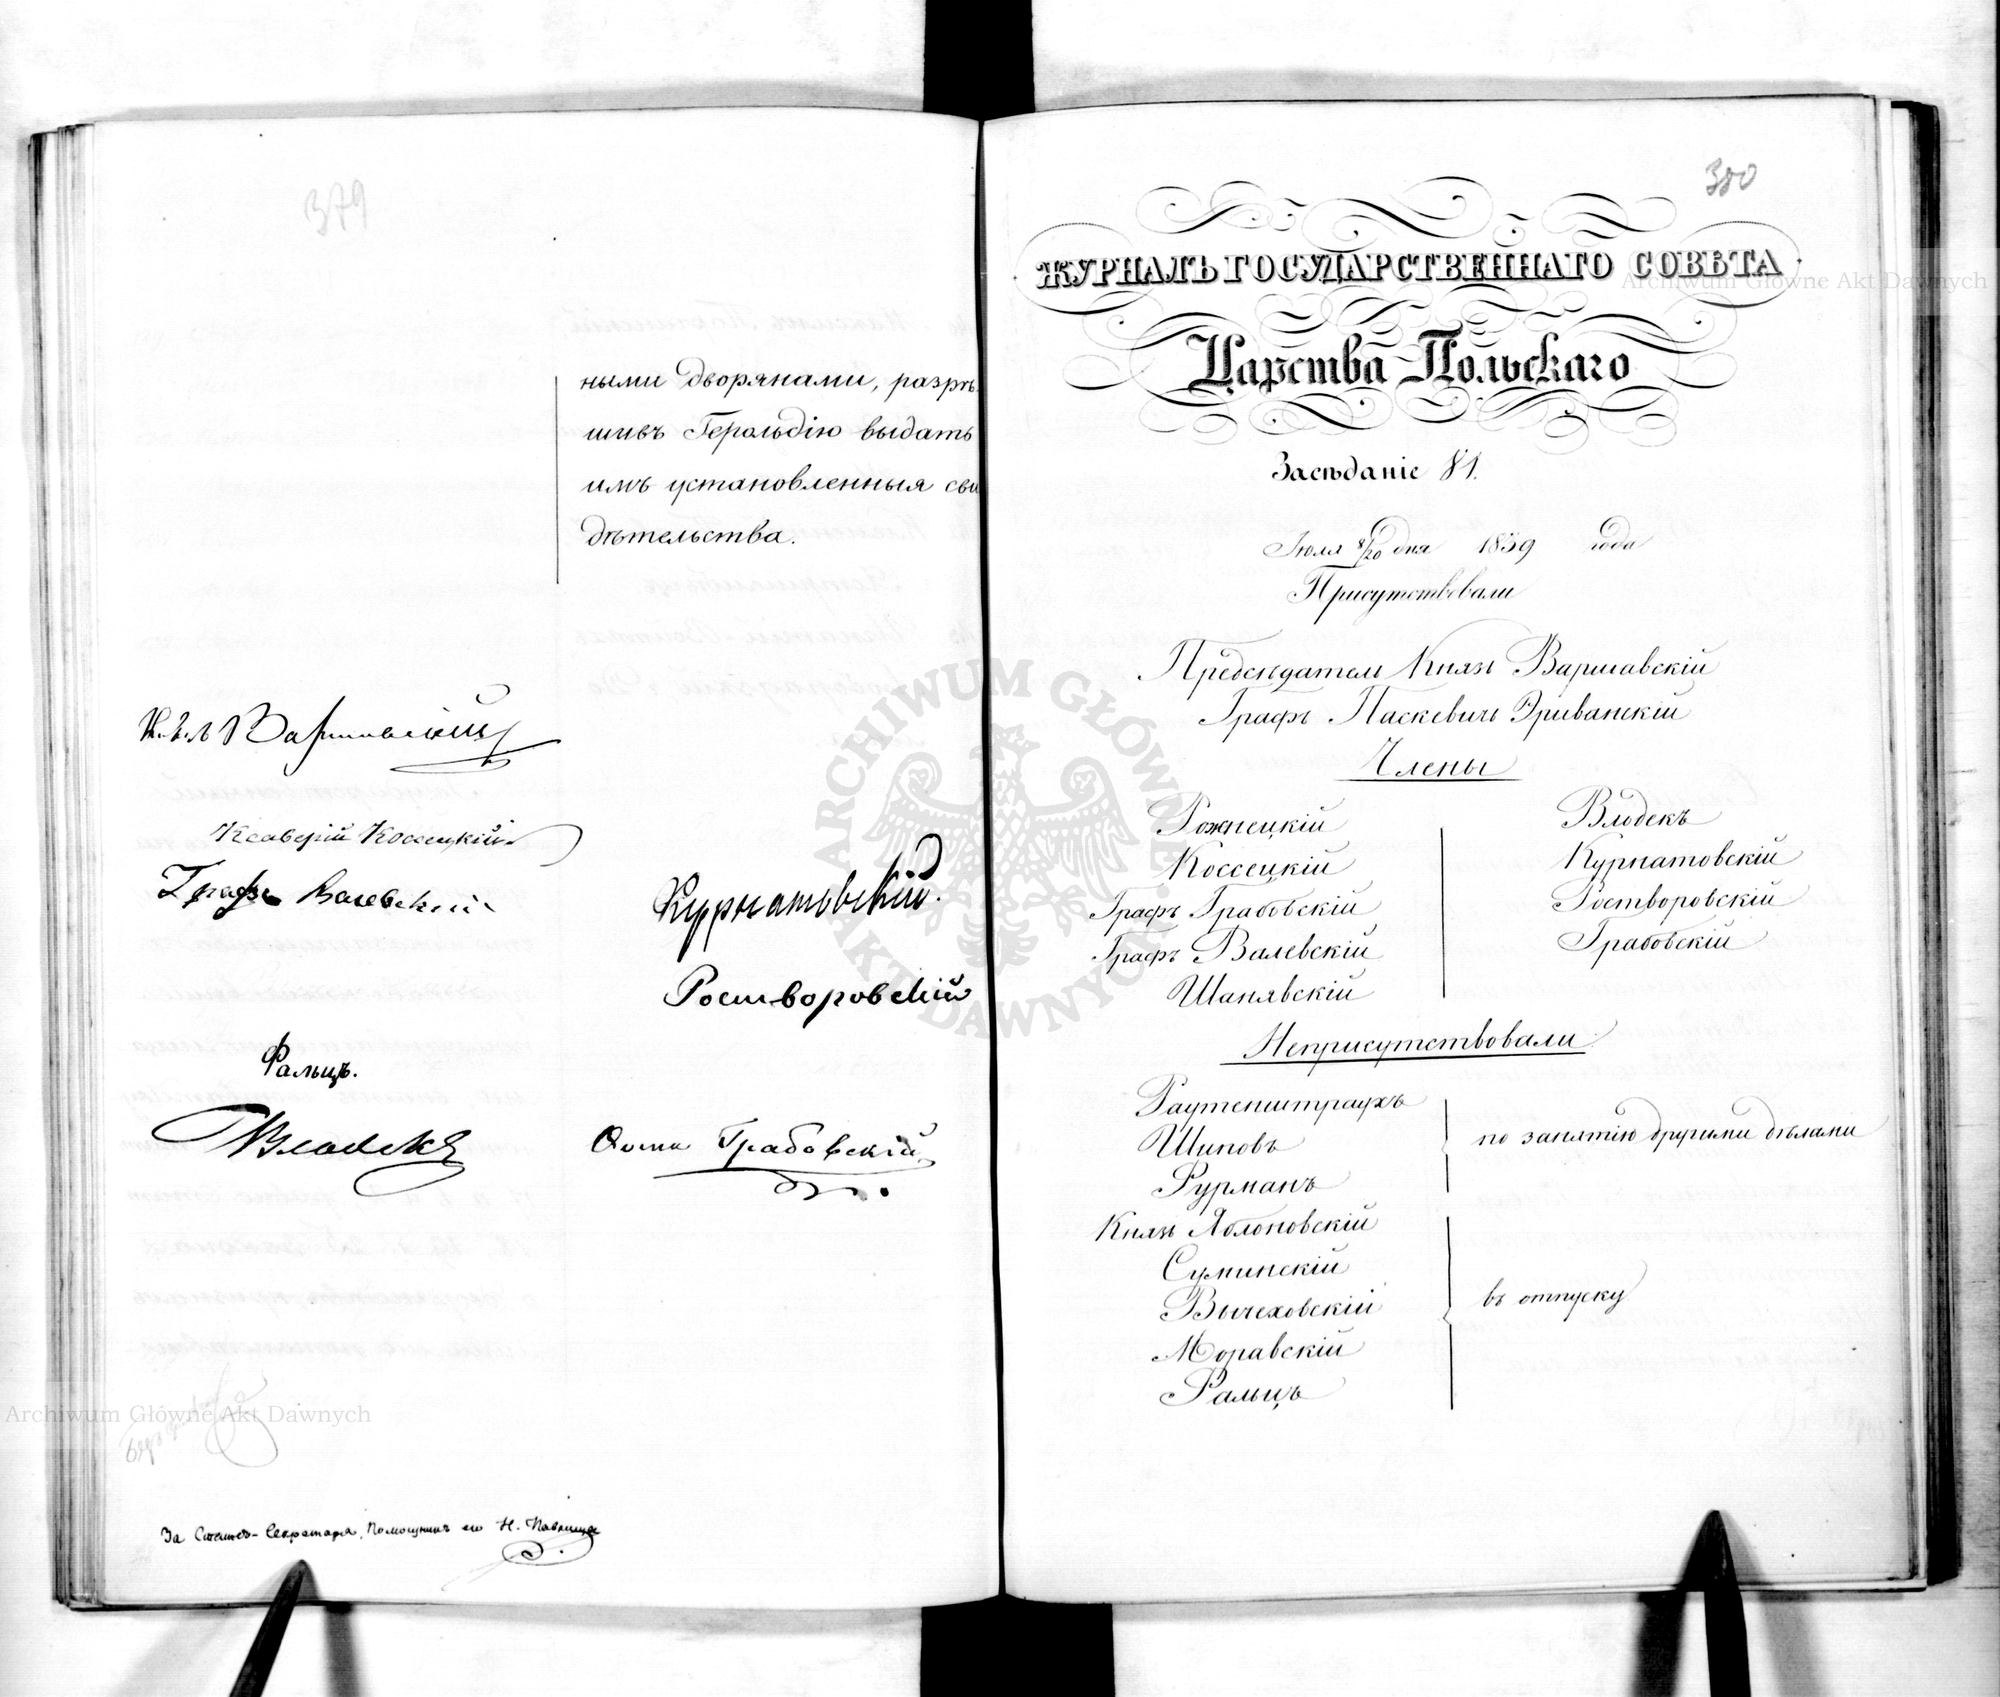 379
ными дворянами, разрѣ
шивъ Герольдію выдать
имъ установленныя сви
дѣтельства.
Варшавскій
Ксаверій Коссецкій
Графъ Валевскій
Курнатовскій.
Ростворовскій
Фальцъ.
Влодекъ
Ѳома Грабовскій
За Статсъ-Секретаря, Помощникъ его Н.
380
ЖУРНАЛЪ ГОСУДАРСТВЕННАГО СОВѢТА
Царства Польскаго
Засѣданіе 81.
Іюля 8/20 дня 1839 года
Присутствовали
Предсѣдатель Князь Варшавскій
Графъ Паскевичъ Эриванскій
Члены
Рожнецкій
Коссецкій
Графъ Грабовскій
Графъ Валевскій
Шанявскій
Влодекъ
Курнатовскій
Ростворовскій
Грабовскій
Неприсутствовали
Раутенштраухъ
Шиповъ
Фурманъ
по занятію другими дѣлами
Князь Яблоновскій
Суминскій
Вычеховскій
Моравскій
Фальцъ
въ отпуску
ARCHIWUM GŁÓWNE AKT DAWNYCH
Archiwum Główne Akt Dawnych
Archiwum Główne Akt Dawnych